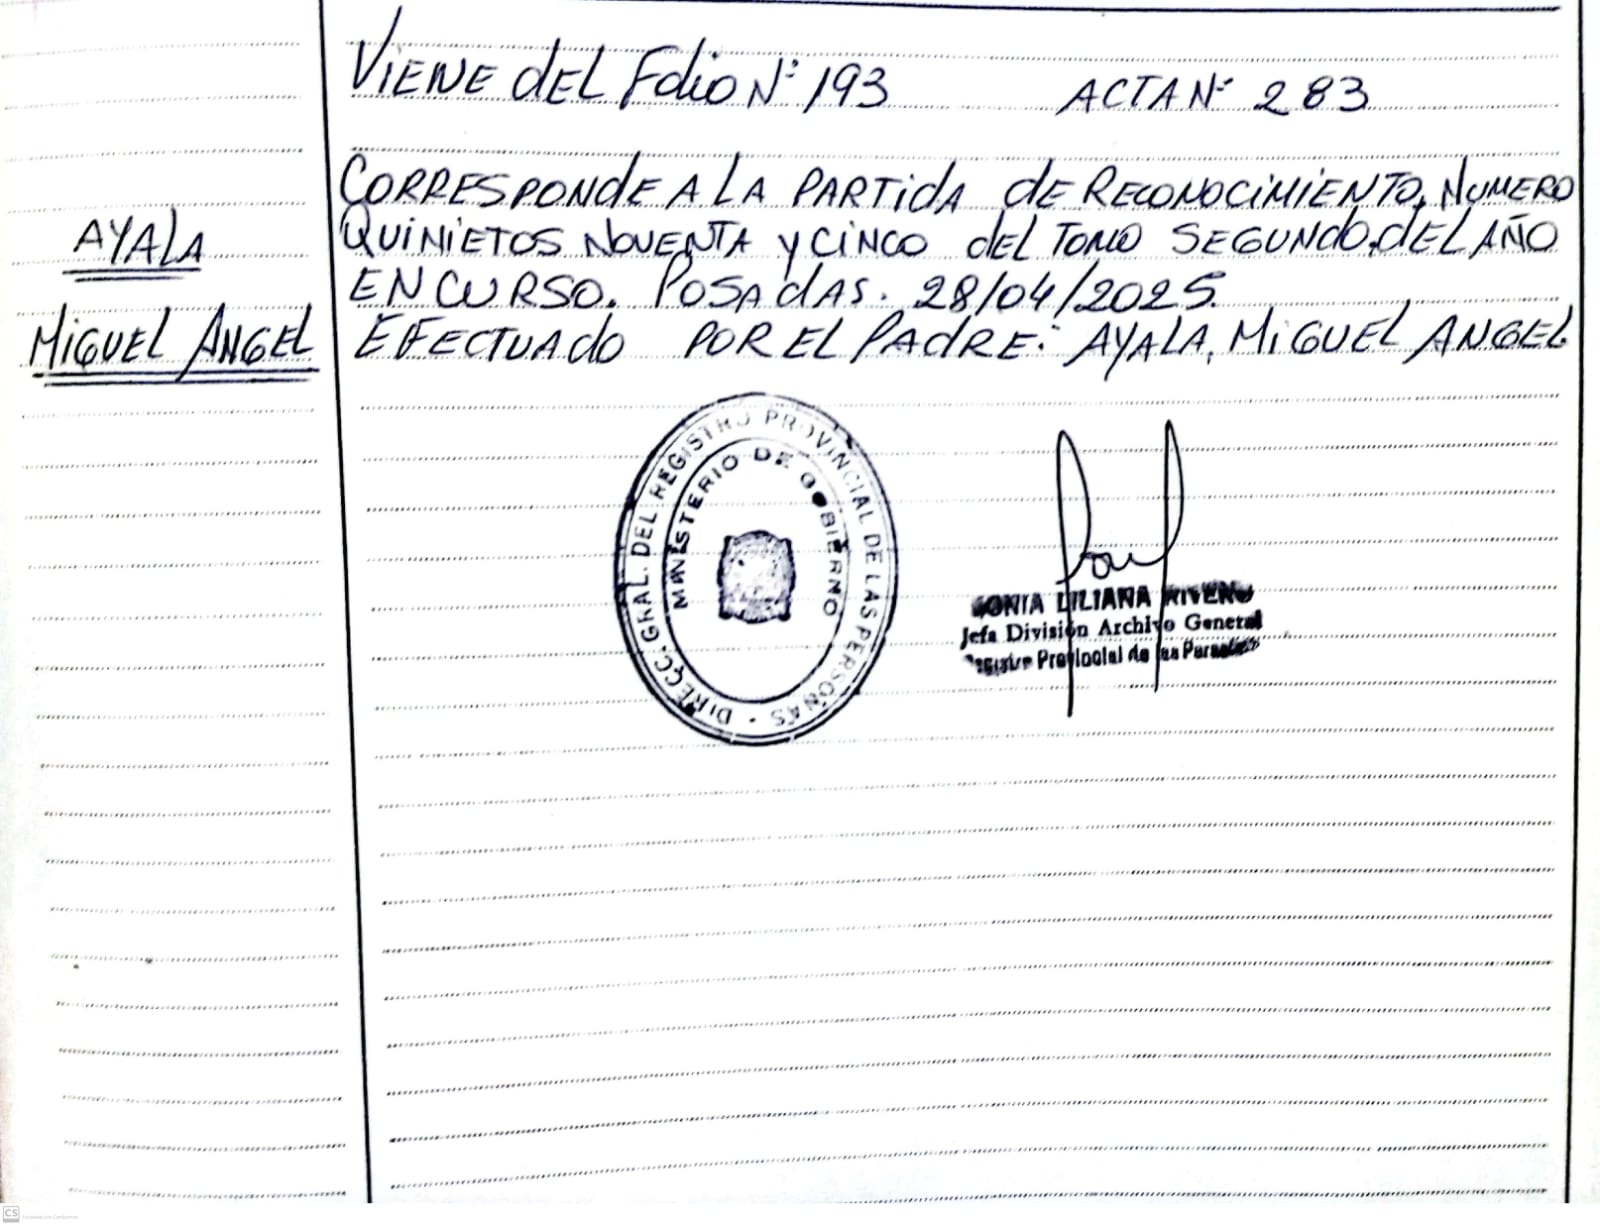 VIENE DEL Folio Nº 193 ACTA Nº 283
CORRESPONDE A LA PARTIDA DE RECONOCIMIENTO, NUMERO
QUINIETOS NOVENTA Y CINCO DEL TOMO SEGUNDO, DEL AÑO
EN CURSO. POSADAS. 28/04/2025.
EFECTUADO POR EL PADRE: AYALA, MIGUEL ANGEL
AYALA
MIGUEL ANGEL
DIRECC. GRAL. DEL REGISTRO PROVINCIAL DE LAS PERSONAS
MINISTERIO DE GOBIERNO
SONIA LILIANA RIVERO
Jefa División Archivo General
Registro Provincial de las Personas
CS